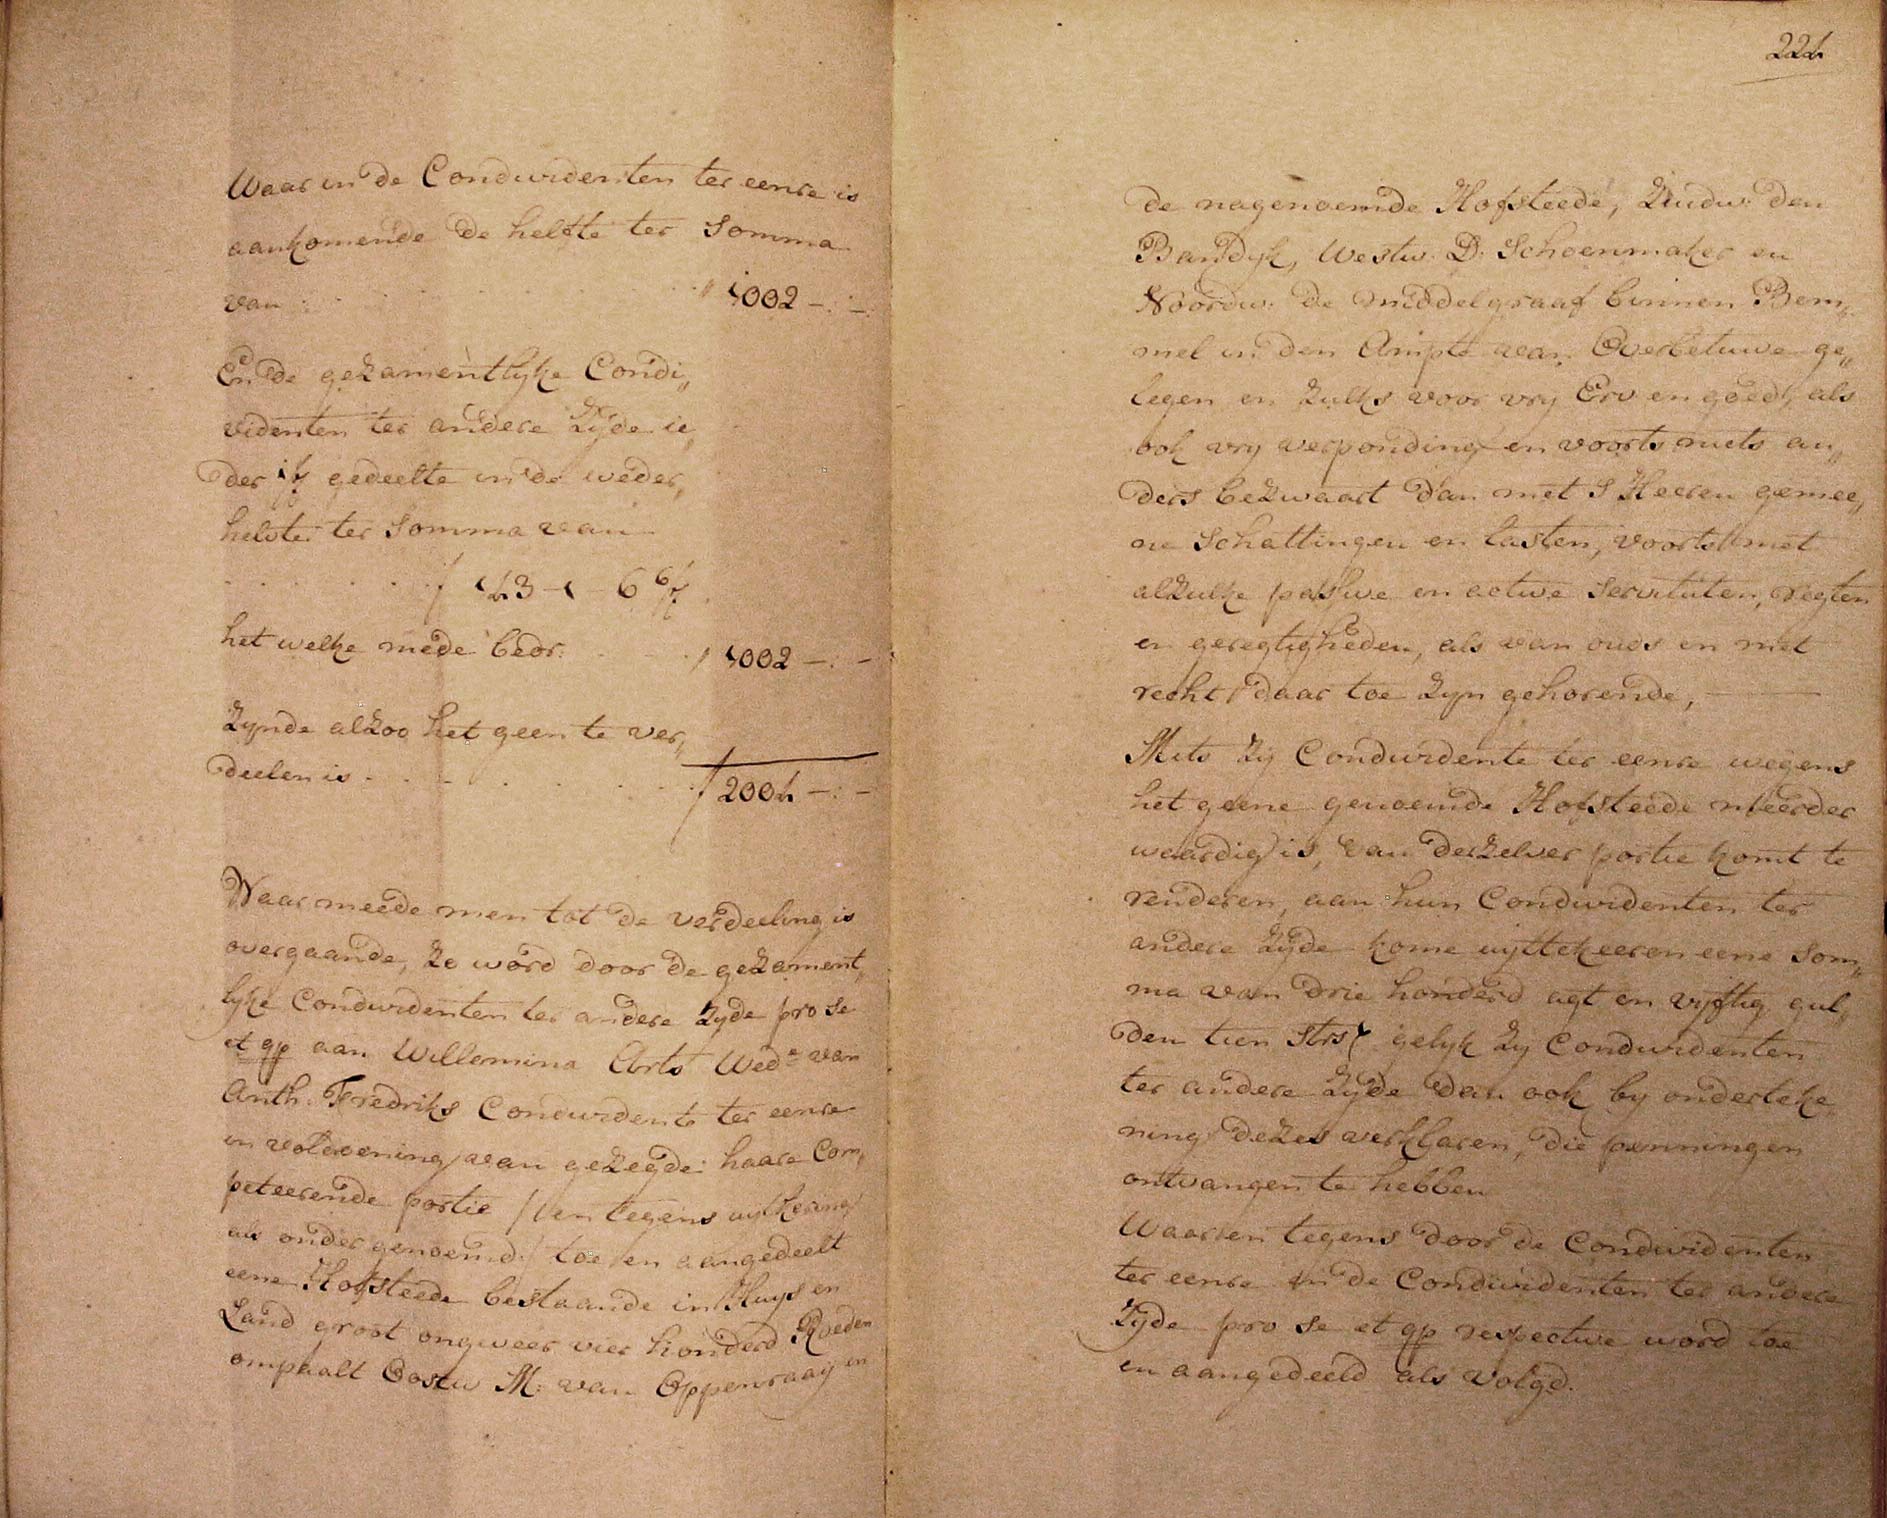 Waar in de Condividenten ter eenre is
aankomende de helfte ter Somma
van . . . . . . . . ƒ 1002 -:-:
En de gezamentlyke Condi„
videnten ter andere Zyde ie„
der 1/7 gedeelte in de weder„
helvte ter Somma van
. . . . . . ƒ 143-1-6 6/7
het welke mede beór: . . . ƒ 1002 -:-
Zynde alzoo het geen te ver„
deelen is . . . . . . ƒ 2004 -:-
Waar meede men tot de verdeeling is
overgaande, Zo word door de gezament„
lyke Condividenten ter andere Zyde pro se
et qp aan Willemina Arts Wede van
Anth: Fredriks Condividente ter eenre
in voldoening van gezegde haare Com„
peteerende portie / en tegens uytkering
als onder genoemd / toe en aangedeelt
eene Hofsteede bestaande in Huys en
Land groot ongeveer vier honderd Roeden
ompaalt Oostw M: van Oppenraay en
224
de nagenoemde Hofsteede, Zuidw: den
Bandyk, Westw: D: Schoenmaker en
Noordw: de middelgraaf binnen Bem„
mel in den Ampte van Overbetuwe ge„
legen en Zulks voor vry Erv en goed, als
ook vry verponding en voorts niets an„
ders bezwaart dan met S Heeren gemee„
ne Schattingen en lasten, voorts met
alzulke passive en active Servituten, regten
en geregtigheden, als van ouds en met
recht daar toe Zyn gehorende,
Mits Zy Condividente ter eenre wegens
het geene genoemde Hofsteede meerder
waardig is, van derzelver portie komt te
renderen, aan hun Condividenten ter
andere Zyde kome uyttekeeren eene Som„
ma van drie honderd agt en vyftig gul„
den tien Strs / gelyk Zy Condividenten
ter andere Zyde dan ook by onderteke„
ning dezes verklaren, die penningen
ontvangen te hebben
Waar en tegens door de Condividenten
ter eenre in de Condividenten ter andere
Zyde pro se et qp respective word toe
en aangedeeld als volgd.